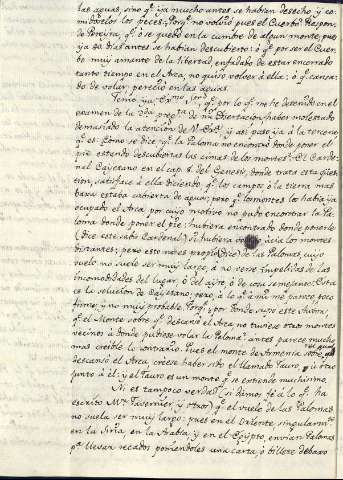 las aguas, sino q.e ya mucho antes se habian desecho, y co-
midoselos los peces. Porq.e no volvió pues el Cuerbo? Respon-
de Pereyra, q.e ó se quedó en la cumbre de algun monte, pues
ya 40 dias antes se habian descubierto: ó q.e por ser el Cuer-
bo muy amante de la libertad, enfadado de estar encerrado
tanto tiempo en el Arca, no quiso volver á ella: ó q.e cansa-
do de volar pereció en las aguas.
Temo ya, Ex.mo Señor, q.e por lo q.e me he detenido en el
examen de la 2.da preg.ta de mi Disertacion, haber molestado
demasiado la atencion de V. Ex.a y asi paso yá a la tercera,
q.e es: Como se dice q.e la Paloma no encontró donde poner el
pie estando descubiertas las cimas de los montes? El Carde-
nal Cayetano en el cap. 8 del Genesis, donde trata esta ques-
tion, satisface á ella diciendo q.e los campos, ó la tierra mas
baxa estaba cubierta de aguas; pero q.e los montes los habia ya
ocupado el Arca, por cuyo motivo no pudo encontrar la Pa-
loma donde poner el pie; hubiera encontrado donde ponerle
(dice este sabio Cardenal) si hubiera ido ácia los montes
distantes; pero esto no es propio (dice) de las Palomas, cuyo
vuelo no suele ser muy largo, á no verse impelidas de las
incomodidades del lugar, ó del ayre, ó de cosa semejante. Esta
es la solucion de Cayetano; pero, á lo q.e á mi me parece poco
firme, y no muy probable. Porq.e por donde supo este Autor,
q.e el Monte sobre q.e descansó el Arca no tuviese otros montes
vecinos á donde pudiese volar la Paloma? antes parece mucho
mas creible lo contrario. Pues el monte de Armenia sobre q.e
descansó el Arca, creese haber sido el llamado Tauro, ú otro
junto á él; y el Tauro es un monte q.e se extiende muchisimo.
Ni es tampoco verdad (si damos fé á lo q.e ha
escrito Mr. Tavernier, y otros) q.e el vuelo de las Palomas
no suela ser muy largo: pues en el Oriente, singularm.te
en la Siria, en la Arabia, y en el Egipto, envian Palomas
p.a llevar recados poniendoles una carta, ó billete debaxo